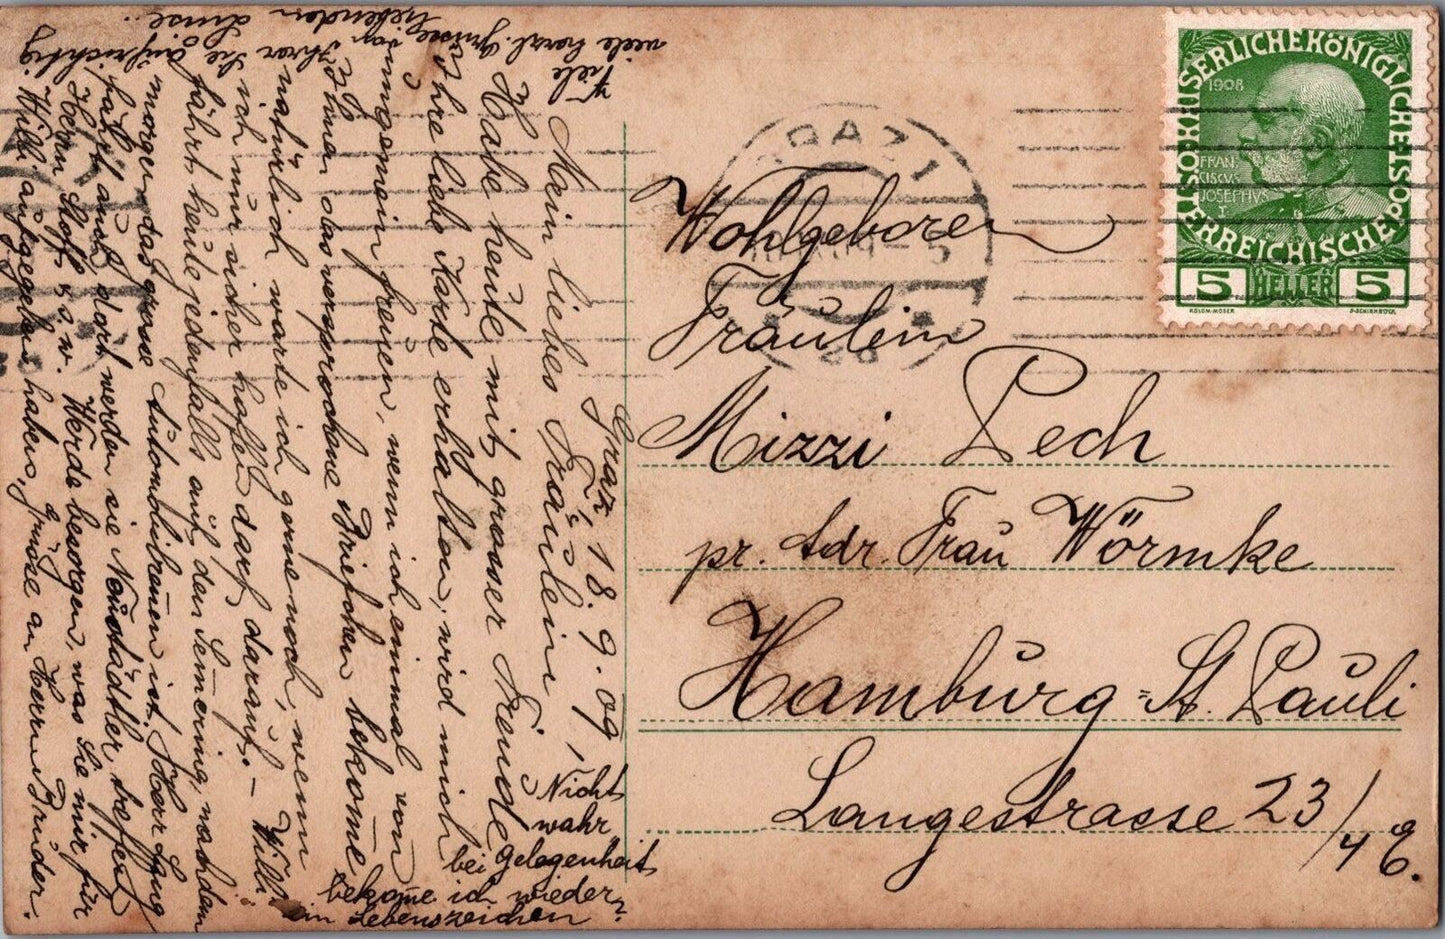 Graz, 18.9.09.
Mein liebes Fräulein!
Habe heute mit grosser Freude
Ihre liebe Karte erhalten, wird mich
ungemein freuen, wenn ich einmal von
Ihnen das versprochene Briefchen bekome
natürlich warte ich gerne noch, wenn
ich nur sicher hoffen darf, darauf. – Willi
fährt heute jedenfalls auf den Semering, nachdem
morgen das grosse Automobilrennen ist, Herr
fährt auch, dort werden sie Neustädtler, treffen
Herrn Stoff u.s.w. Werde besorgen, was Sie mir für
Willi aufgegeben haben, Grüsse an Herrn Bruder.
viele herzl. Grüsse von Ihrer Sie aufrichtig
liebenden Luise.
Nicht
wahr
bei Gelegenheit
bekome ich wieder
ein Lebenszeichen?
Wohlgeboren
Fräulein
Mizzi Pech
pr. Adr. Frau Wörmke
Hamburg=St. Pauli
Langestrasse 23/4 E.
GRAZ 1
KAISERLICHE KÖNIGLICHE ÖSTERREICHISCHE POST
1908
FRAN
CISCVS
JOSEPHVS
I
5 HELLER 5
KOLOM. MOSER
F. SCHIRNBÖCK